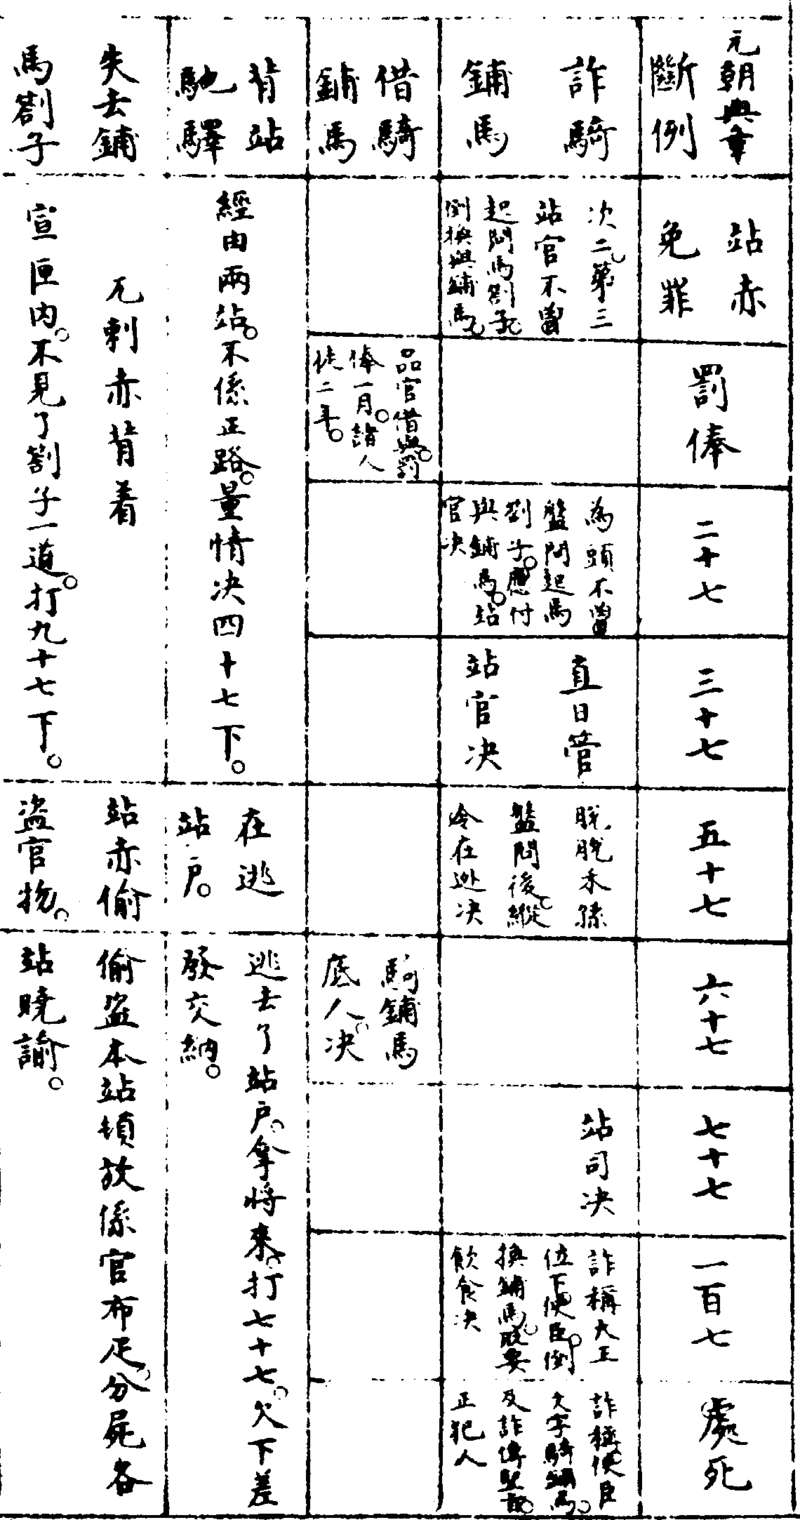 元朝典章
斷例
站赤
免罪
罰俸
二十七
三十七
五十七
六十七
七十七
一百七
處死
詐騎
鋪馬
次二。第三
站官不曾
起問馬劄子。
倒換與鋪馬。
為頭不曾
盤問起馬
劄子。應付
與鋪馬。站
官决
直日管
站官决
脫脫禾孫
盤問後。縱
令在逃决
站司决
詐稱大王
位下使臣。倒
換鋪馬。取要
飲食决
詐稱使臣
文字騎鋪馬。
及詐傳聖旨。
正犯人
借騎
鋪馬
品官借與。罰
俸一月。諸人
徒二年。
騎鋪馬
底人。决
背站
馳驛
經由兩站。不係正路。量情决四十七下。
在逃
站户。
逃去了站户。拿將來。打七十七。欠下差
發交納。
失去鋪
馬劄子
兀剌赤背着
宣匣内。不見了劄子一道。打九十七下。
站赤偷
盗官物。
偷盗本站頓放係官布疋。分屍各
站曉諭。